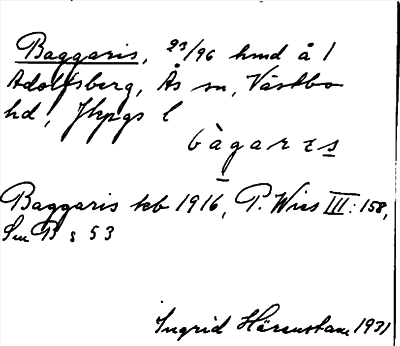 Baggaris, 23/96 hmd å /
Adolfsberg, Ås sn, Västbo
hd, Jkpgs l
bàgarɩs
Baggaris kb 1916, P. Wies III: 158,
Sen B s 53
Ingrid 1931